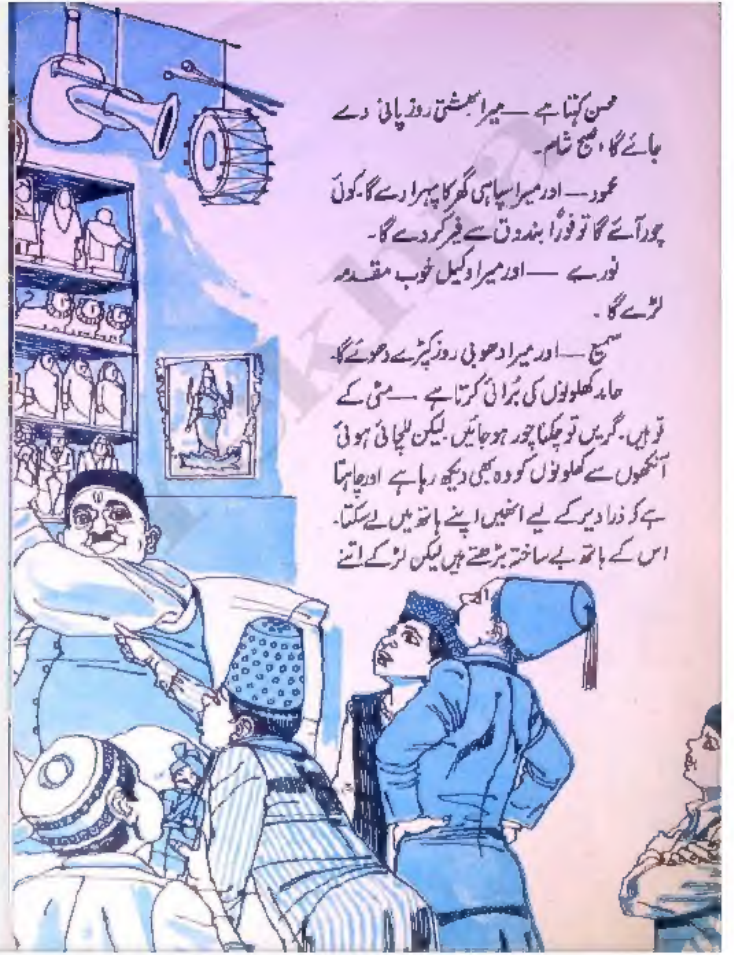 محسن کہتا ہے — میرا بھشتی روز پانی دے
جائے گا، صبح شام۔
محمود — اور میرا سپاہی گھر کا پہرا دے گا۔ کوئی
چور آئے گا تو فوراً بندوق سے فیر کر دے گا۔
نورے — اور میرا وکیل خوب مقدمہ
لڑے گا۔
سمیع — اور میرا دھوبی روز کپڑے دھوئے گا۔
حامد کھلونوں کی بُرائی کرتا ہے — مٹی کے
تو ہیں۔ گریں تو چکنا چور ہو جائیں۔ لیکن للچائی ہوئی
آنکھوں سے کھلونوں کو وہ بھی دیکھ رہا ہے اور چاہتا
ہے کہ ذرا دیر کے لیے انھیں اپنے ہاتھ میں لے سکتا۔
اس کے ہاتھ بے ساختہ بڑھتے ہیں لیکن لڑکے اتنے